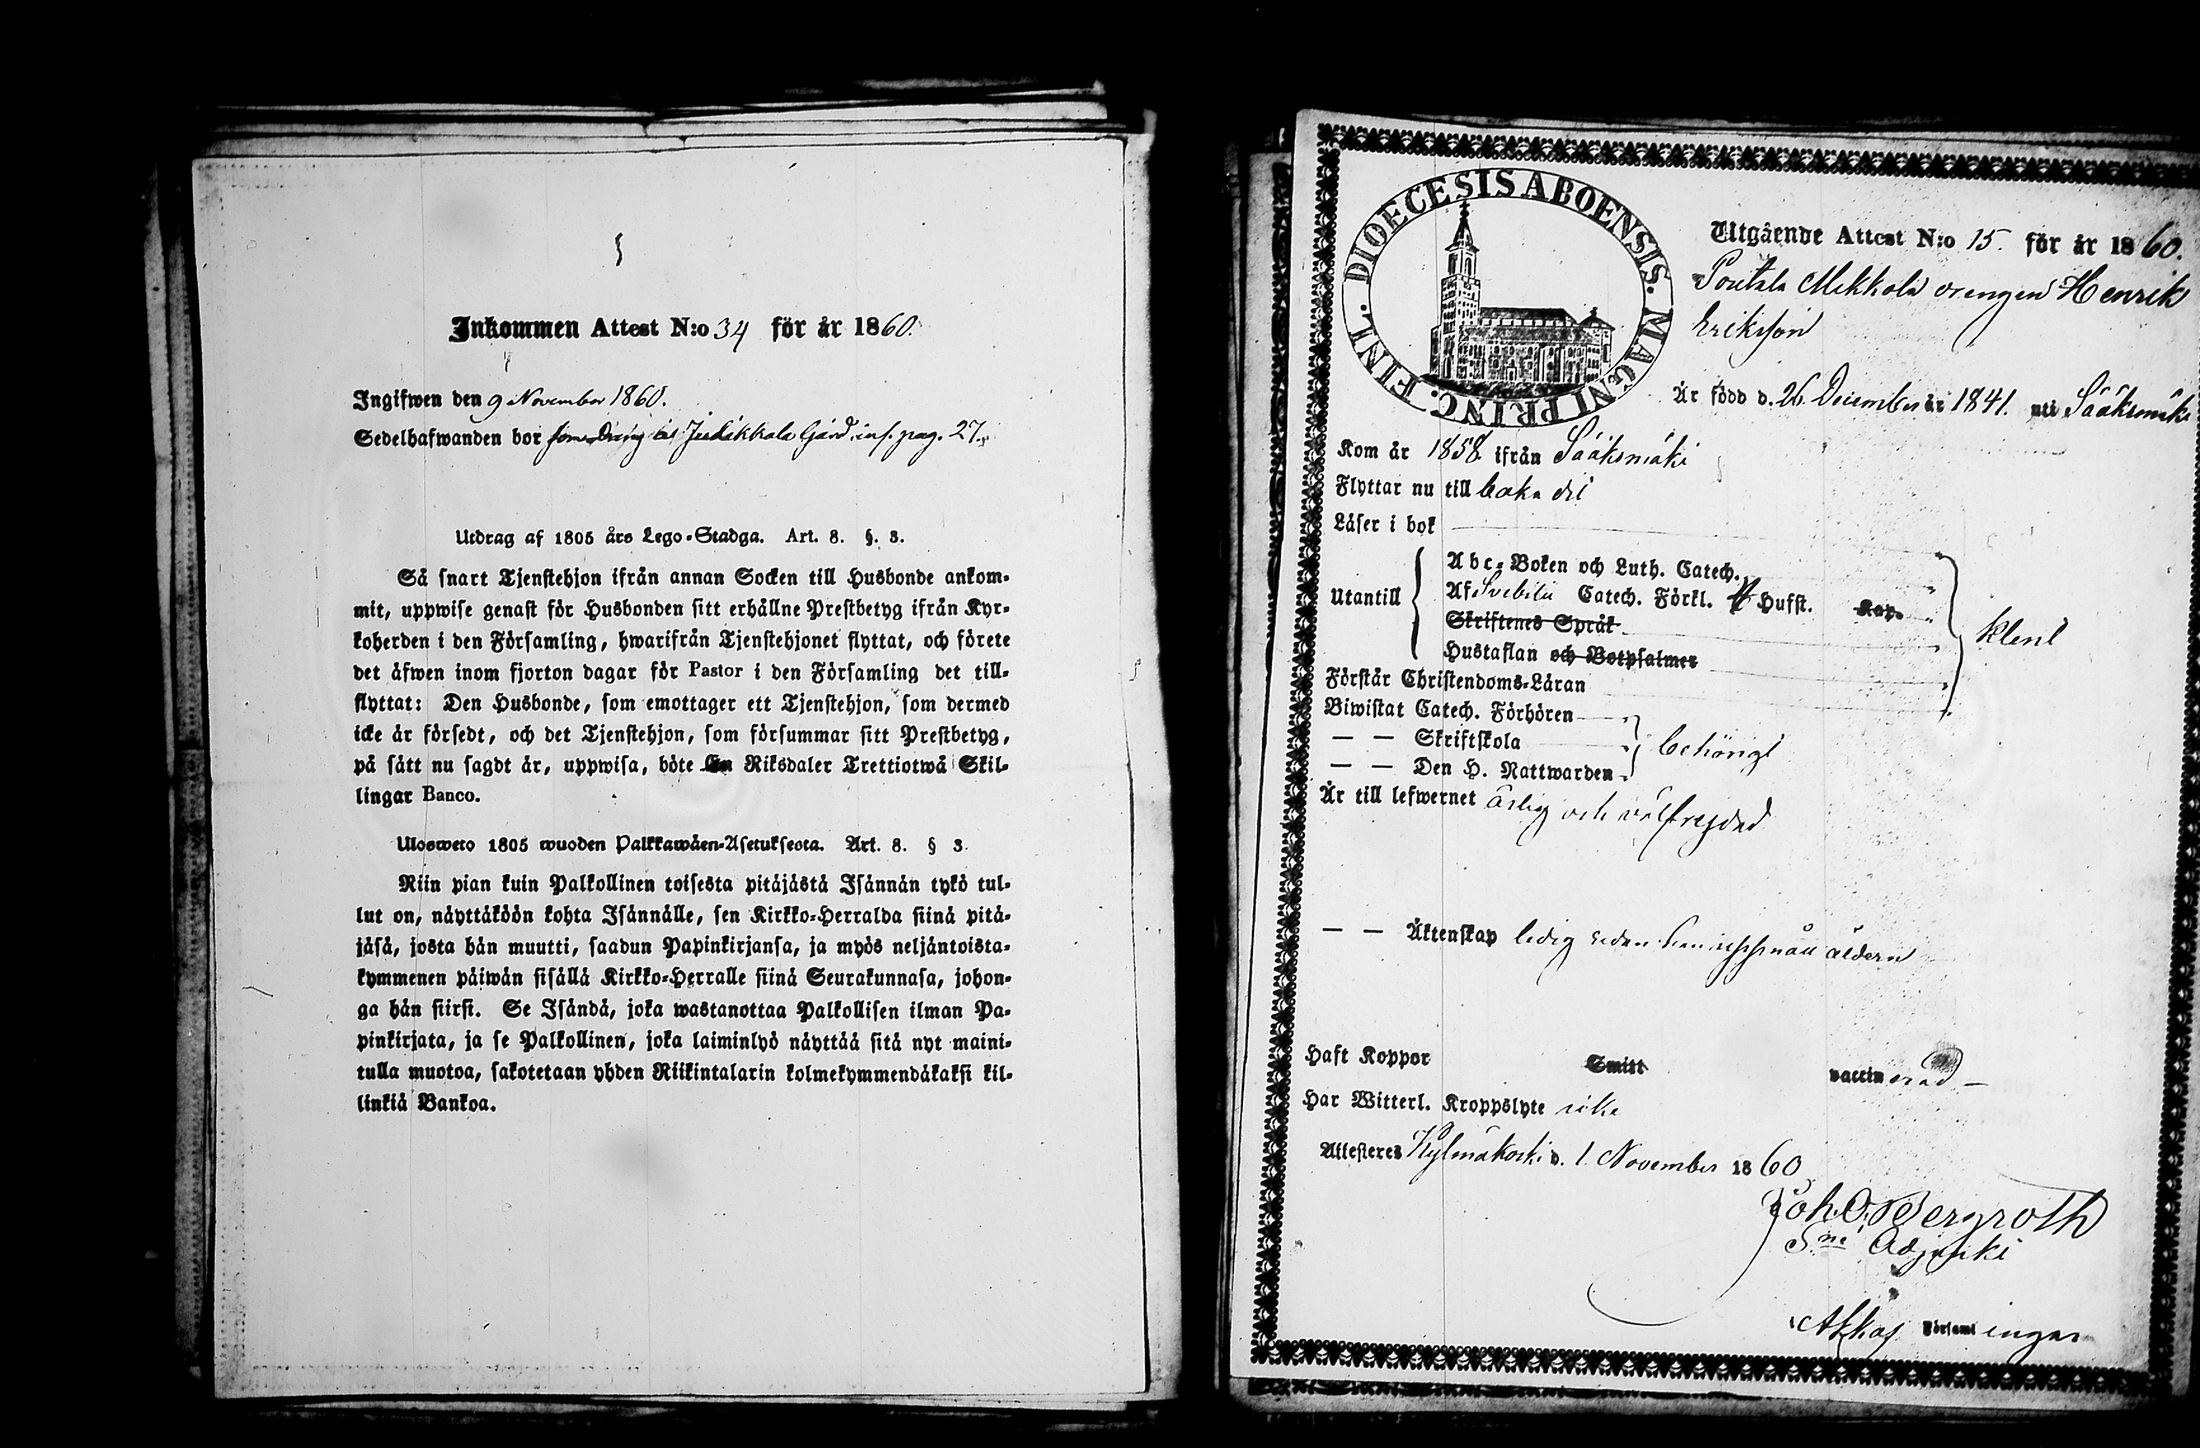 Inkommen Attest N:o 34 för år 1860.
Ingifwen den 9 November 1860.
Sedelhafwanden bor som Dräng på Gård inf. pag. 27.
Utdrag af 1805 års Lego-Stadga. Art. 8. §. 3.
Så snart Tjenstehjon ifrån annan Socken till Husbonde ankom-
mit, uppwise genast för Husbonden sitt erhållne Prestbetyg ifrån Kyr-
koherden i den Församling, hwarifrån Tjenstehjonet flyttat, och förete
det äfwen inom fjorton dagar för Pastor i den Församling det till-
flyttat: Den Husbonde, som emottager ett Tjenstehjon, som dermed
icke är försedt, och det Tjenstehjon, som försummar sitt Prestbetyg,
på sätt nu sagdt är, uppwisa, böte En Riksdaler Trettiotwå Skil-
lingar Banco.
Ulosweto 1805 wuoden Palkkawäen-Asetuksesta. Art. 8. § 3.
Niin pian kuin Palkollinen toisesta pitäjästä Isännän tykö tul-
lut on, näyttäköön kohta Isännälle, sen Kirkko-Herralda siinä pitä-
jäsä, josta hän muutti, saadun Papinkirjansa, ja myös neljäntoista-
kymmenen päiwän sisällä Kirkko-Herralle siinä Seurakunnasa, johon-
ga hän siirsi. Se Isändä, joka wastanottaa Palkollisen ilman Pa-
pinkirjata, ja se Palkollinen, joka laiminlyö näyttää sitä nyt maini-
tulla muotoa, sakotetaan yhden Riikintalarin kolmekymmendäkaksi kil-
linkiä Bankoa.
DIOECESIS ABOENSIS. MAGNI PRINC. FINL.
Utgående Attest N:o 15. för år 1860.
Soutala Mikkola drengen Henrik
Eriksson
Är född d. 26 December år 1841. uti Sääksmäki
Kom år 1858 ifrån Sääksmäki
Flyttar nu till
Läser i bok
Utantill
Abc-Boken och Luth. Catech.
Af Svebilii Catech. Förkl. Hufst. Kap.
Skriftenes Språk
Hustaflan och Botpsalmer
klent
Förstår Christendoms-Läran
Biwistat Catech. Förhören
— — Skriftskola
— — Den H. Nattwarden
behörigt
Är till lefwernet ärlig och välfrejdad
— — Äktenskap ledig sedan han uppnått åldern
Haft Koppor Smitt vaccinerad —
Har Witterl. Kroppslyte icke
Attesteres Kylmäkoski d. 1 November 1860
Joh. O. Bergroth
Sne Adjunkt
i Akkas Församlingar